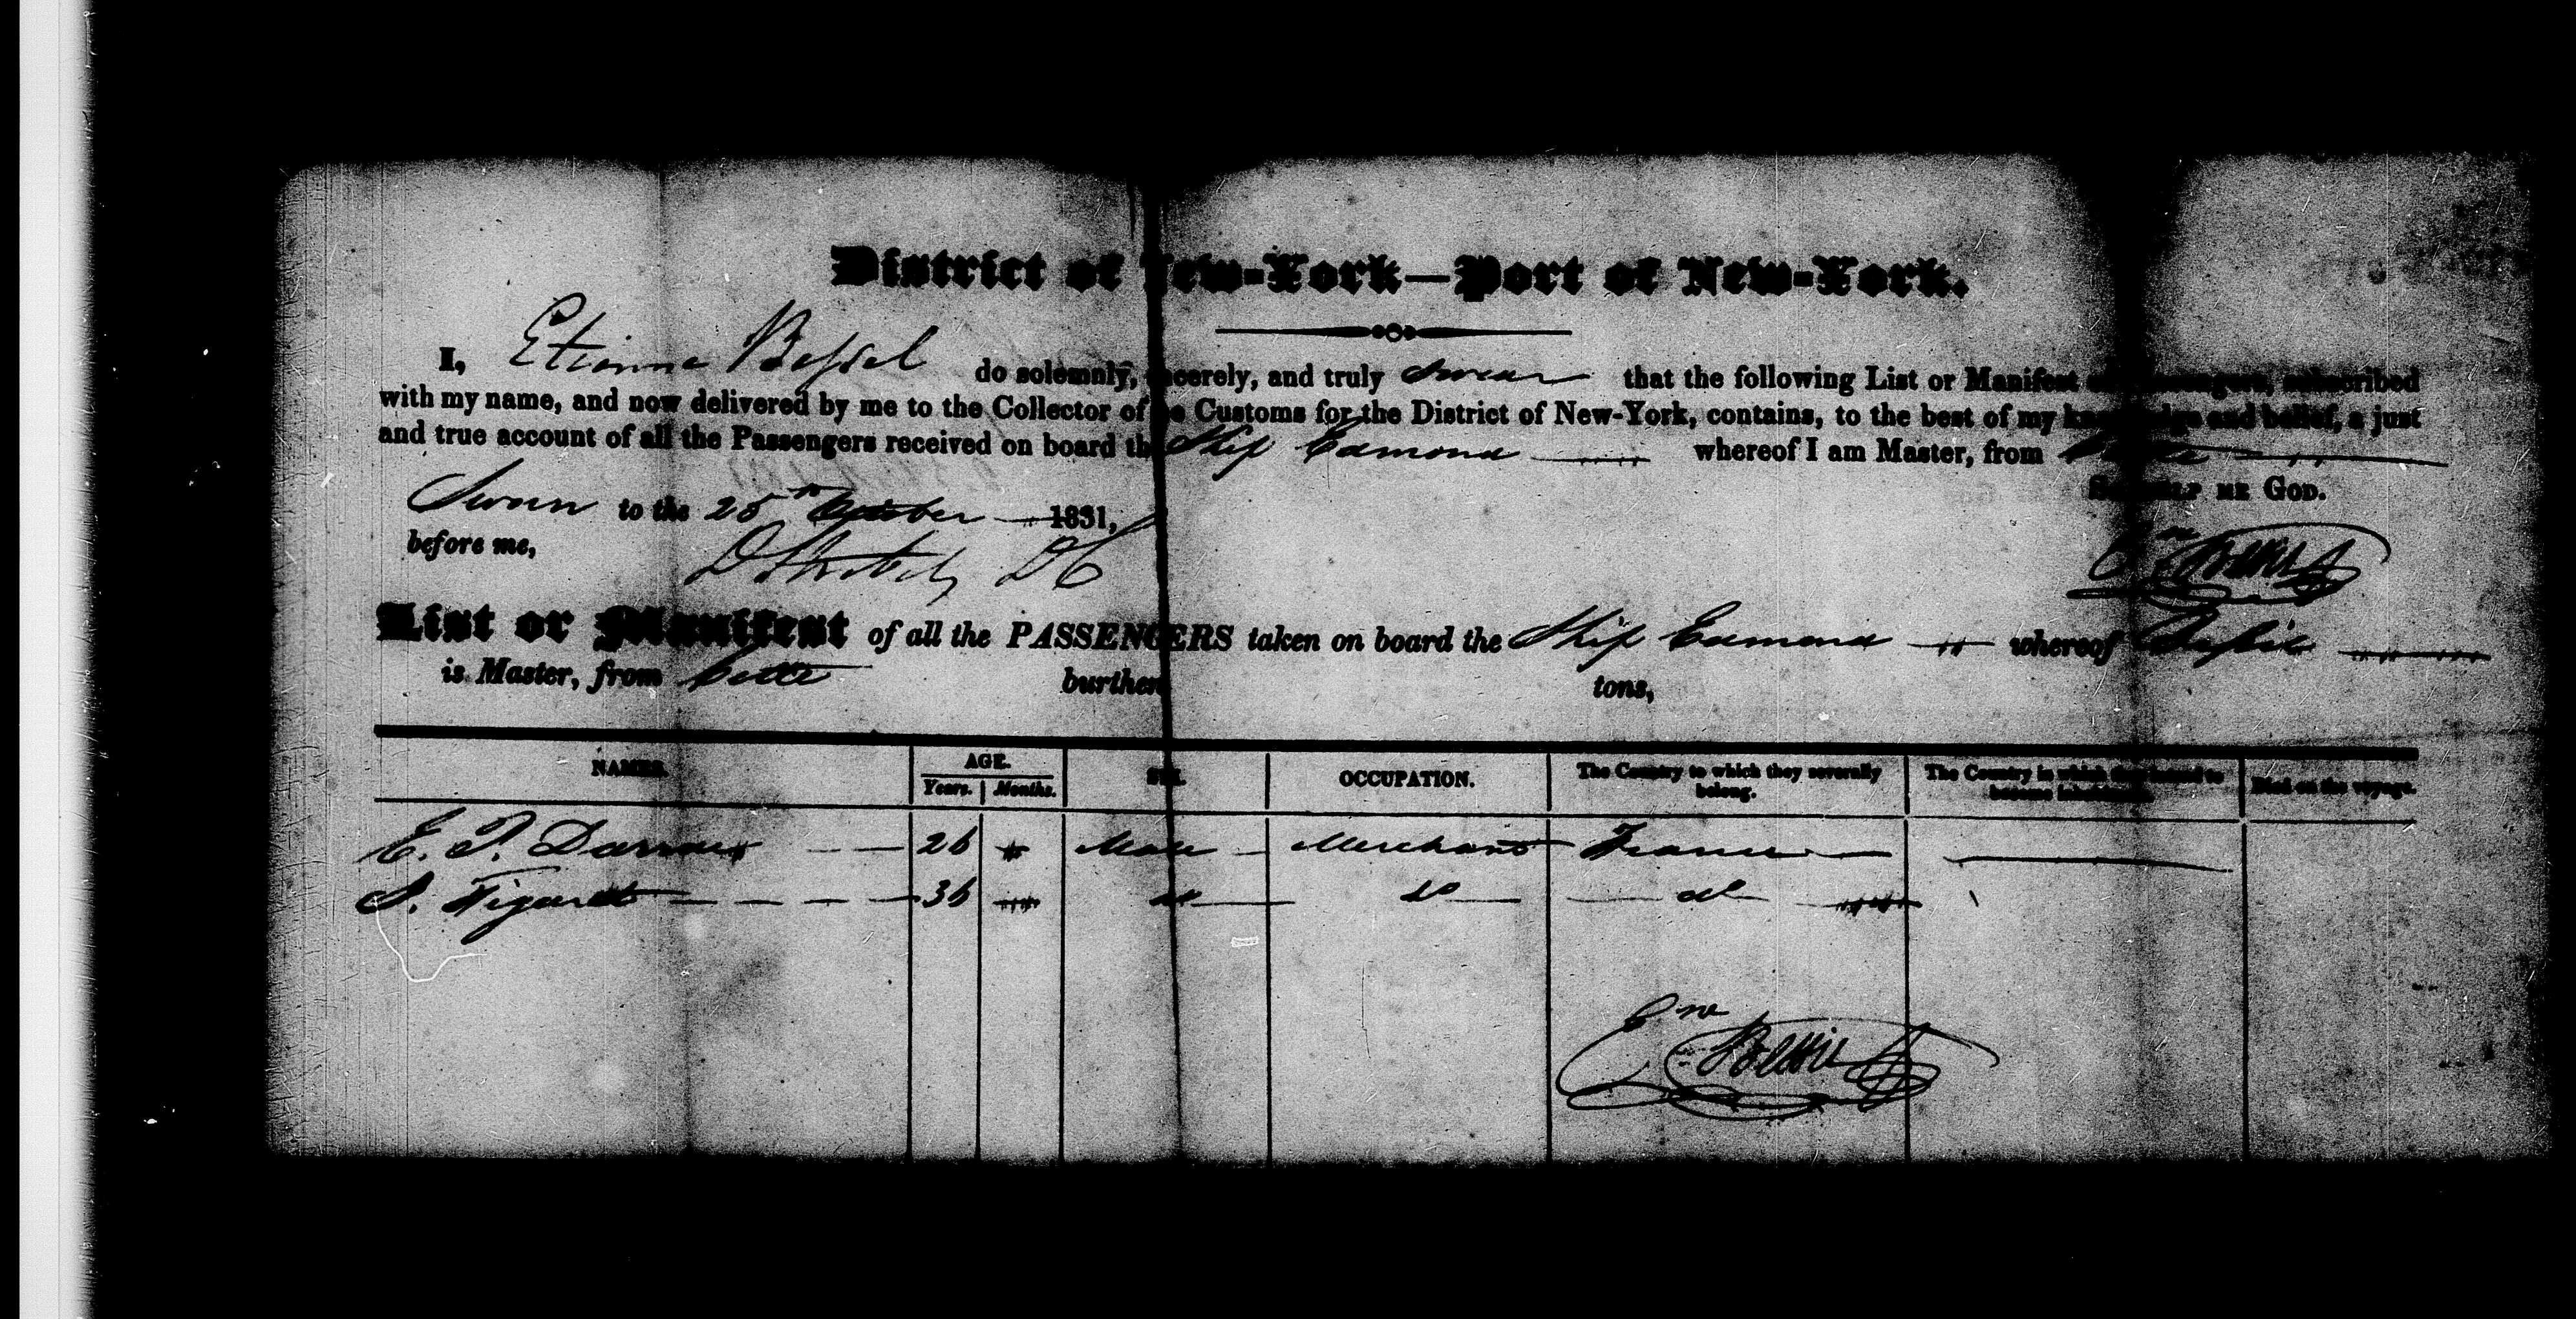 District of New-York—Port of New-York.
I, Etienne Bessel do solemnly, sincerely, and truly swear that the following List or Manifest of Passengers, subscribed
with my name, and now delivered by me to the Collector of the Customs for the District of New-York, contains, to the best of my knowledge and belief, a just
and true account of all the Passengers received on board the Ship Edmond whereof I am Master, from Cette
So HELP ME GOD.
Sworn to the 25th October 1831,
before me,
List or Manifest of all the PASSENGERS taken on board the Ship Edmond whereof
is Master, from Cette burthen tons,
NAMES. AGE. SEX. OCCUPATION. The Country to which they severally belong. The Country in which they intend to become inhabitants. Died on the voyage.
Years. Months.
E. T. 26 Male Merchant France
Figaret 36 do do do